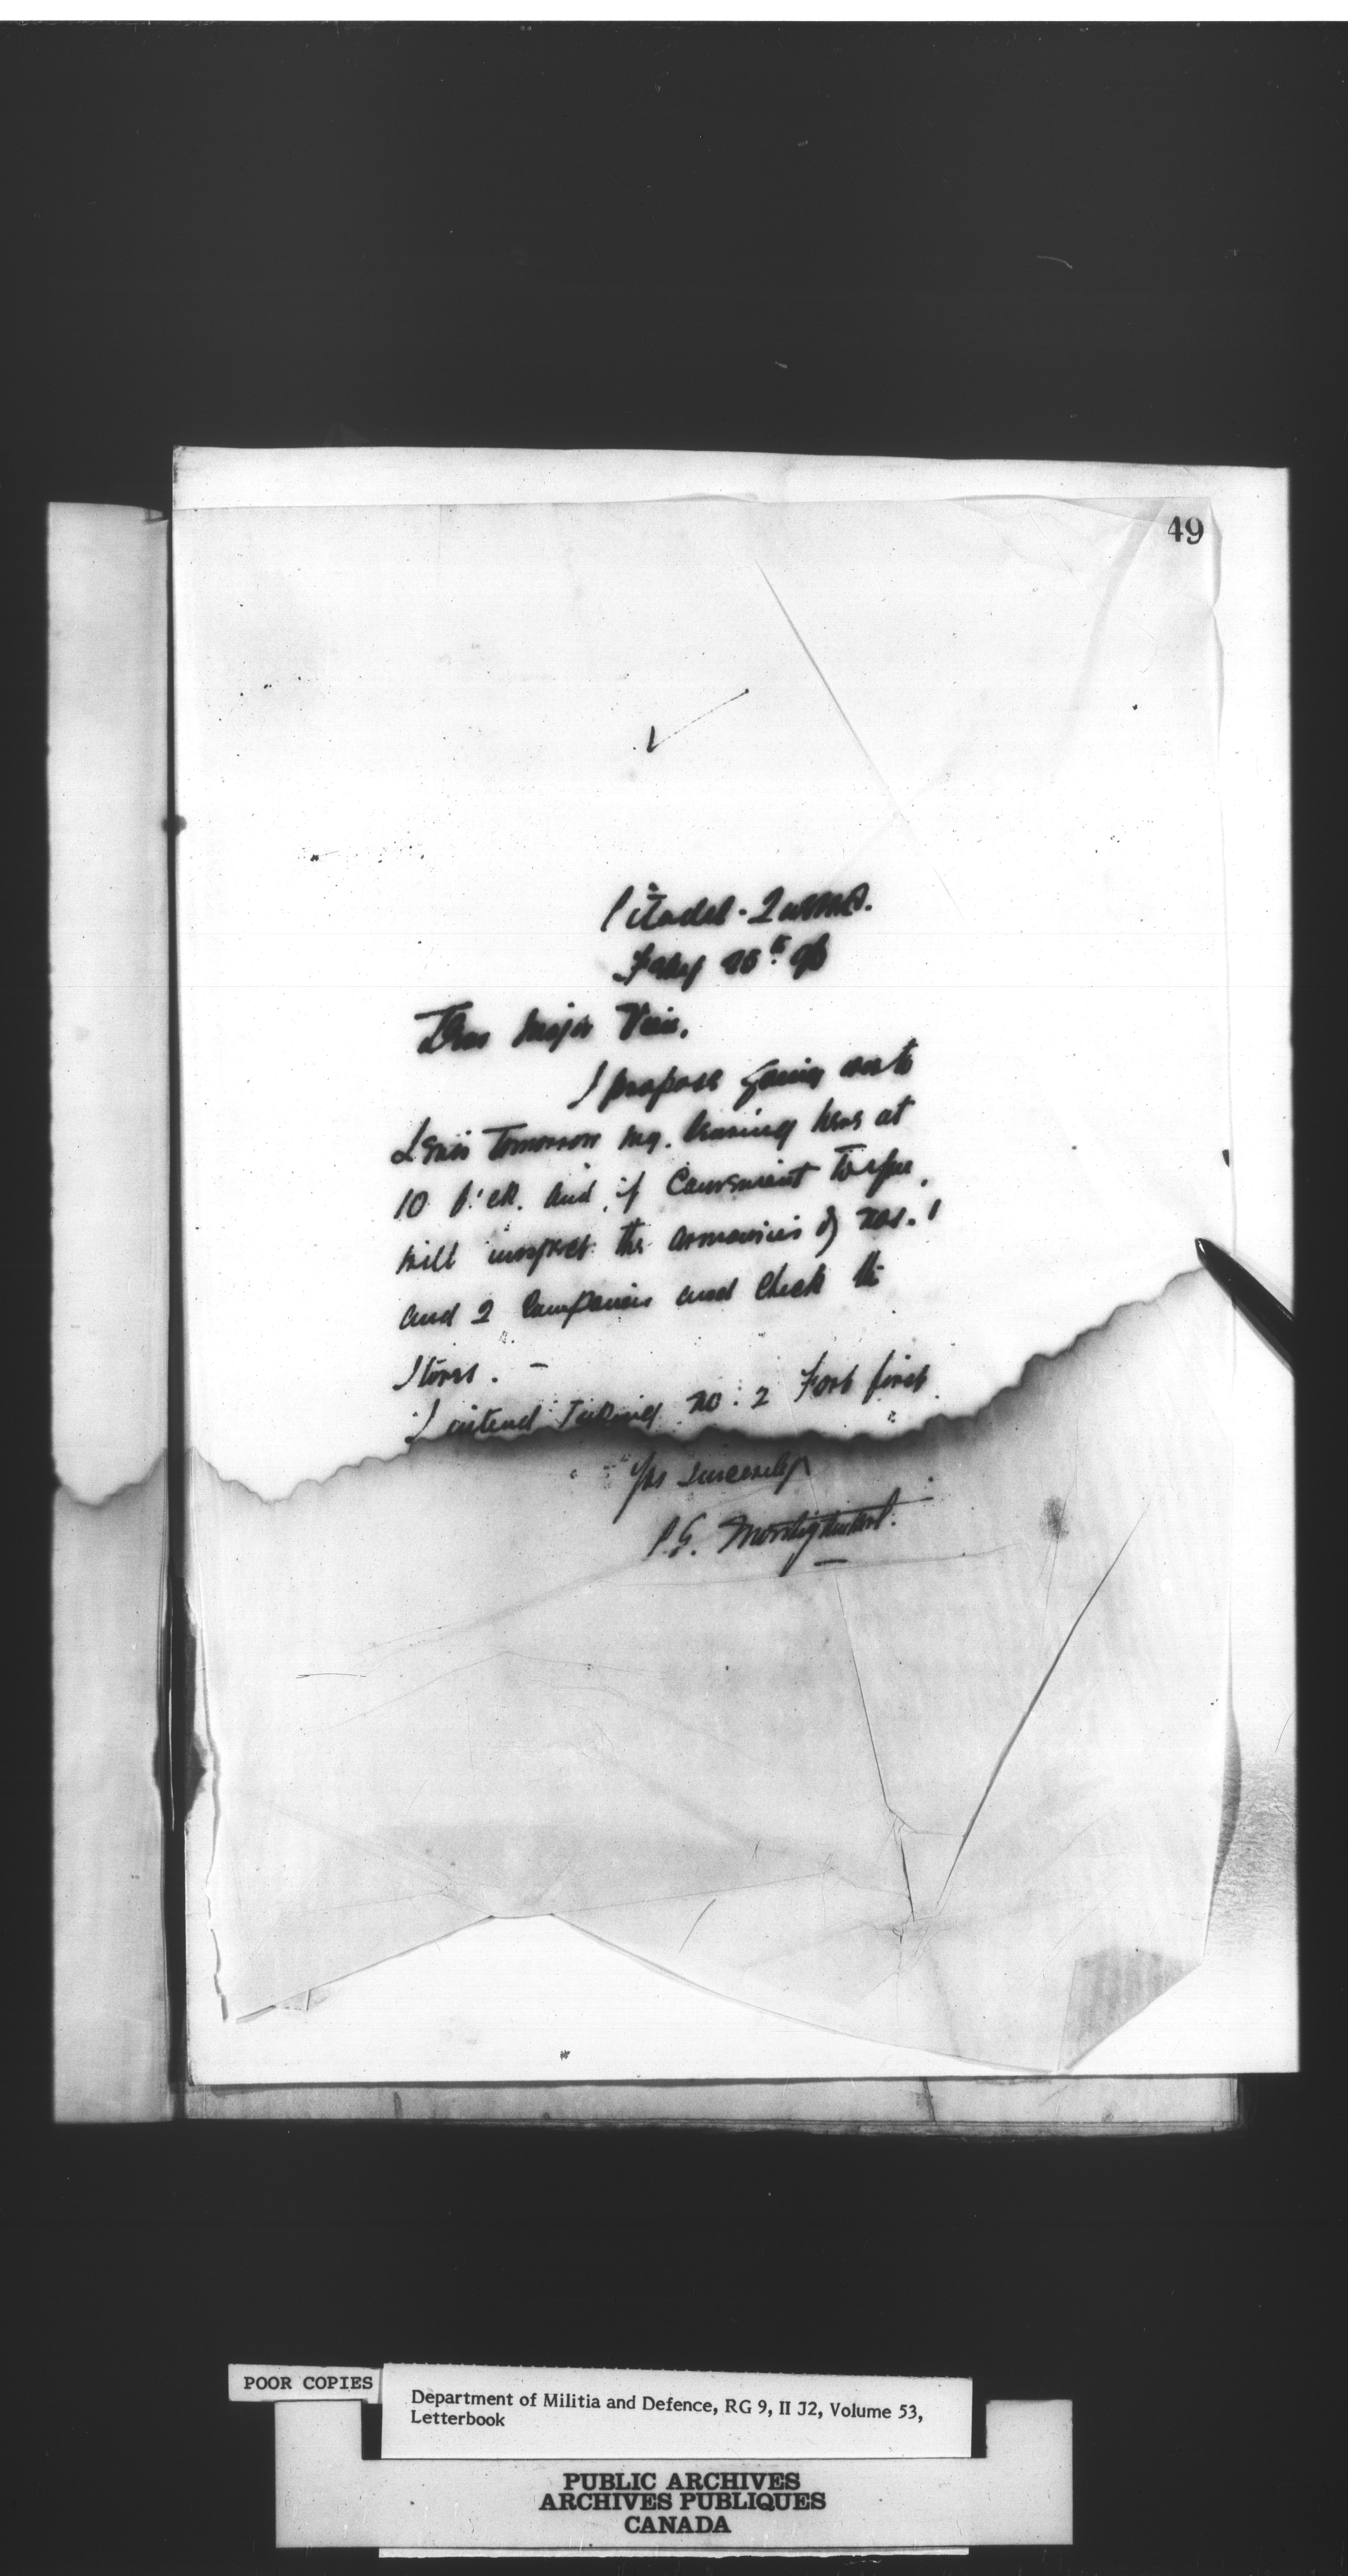 49
Citadel - Quebec.
Feby 25th 96
Dear Major
I propose going over to
Levis Tomorrow mg. leaving here at
10 o'ck. and, if Convenient to you,
will inspect the armouries of nos. 1
and 2 Companies and check the
Stores. -
I intend Taking no. 2 Fort first
Yrs sincerely
POOR COPIES
Department of Militia and Defence, RG 9, II J2, Volume 53,
Letterbook
PUBLIC ARCHIVES
ARCHIVES PUBLIQUES
CANADA